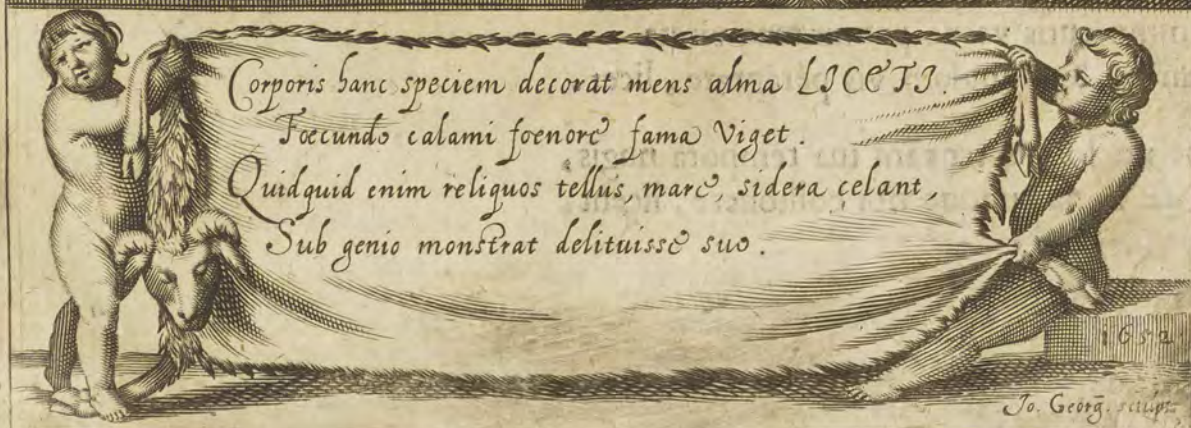 Corporis hanc speciem decorat mens alma LICETI.
Foecundo calami foenore fama Viget.
Quidquid enim reliquos tellus, mare, sidera celant,
Sub genio monstrat delituisse suo.
1652
Jo. Georg̃. sculpt.